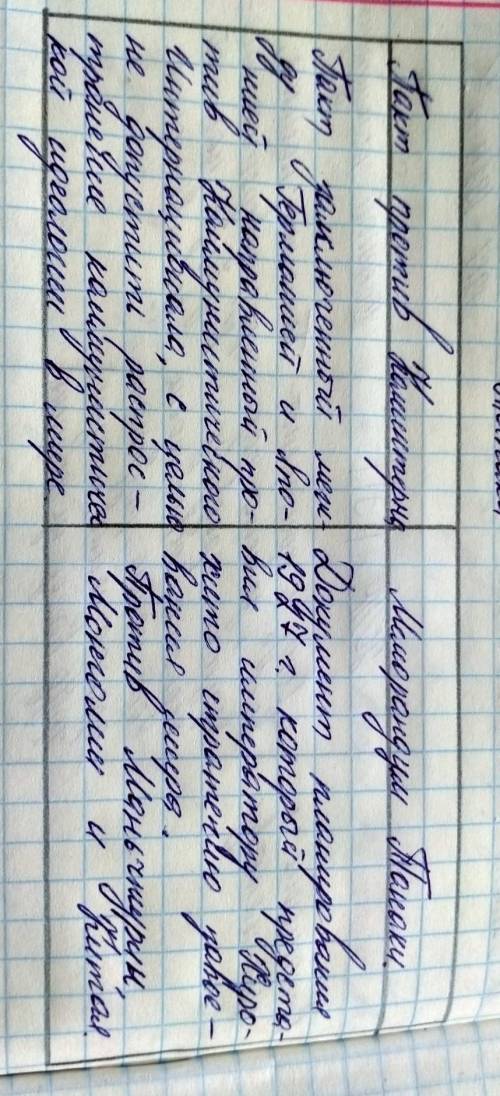 Пакт против Коминтерна
Пакт заключенный меж-
ду Германией и Япо-
нией направленный про-
тив Коммунистического
Интернационала, с целью
не допустить распрос-
транение коммунистичес
кой идеологии в мире.
Меморандум Танаки.
Документ планирования
1927 г. который предста-
вил императору Хиро-
хито стратегию завое-
вания мира.
Против Маньчжурии,
Монголии и Китая.